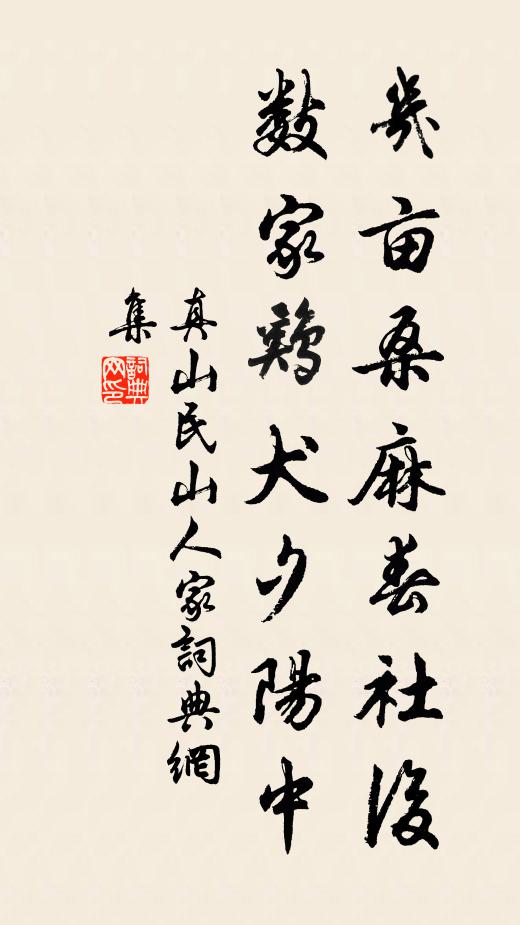 幾亩桑麻春社後
數家鷄犬夕陽中
真山民山人家詞典網
集
詞典
网印